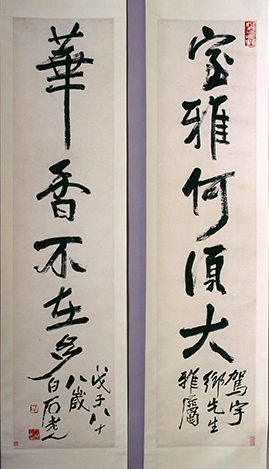 室雅何須大
駕宇
鄉先生
雅屬
華香不在多
戊子八十
八歲
白石老人